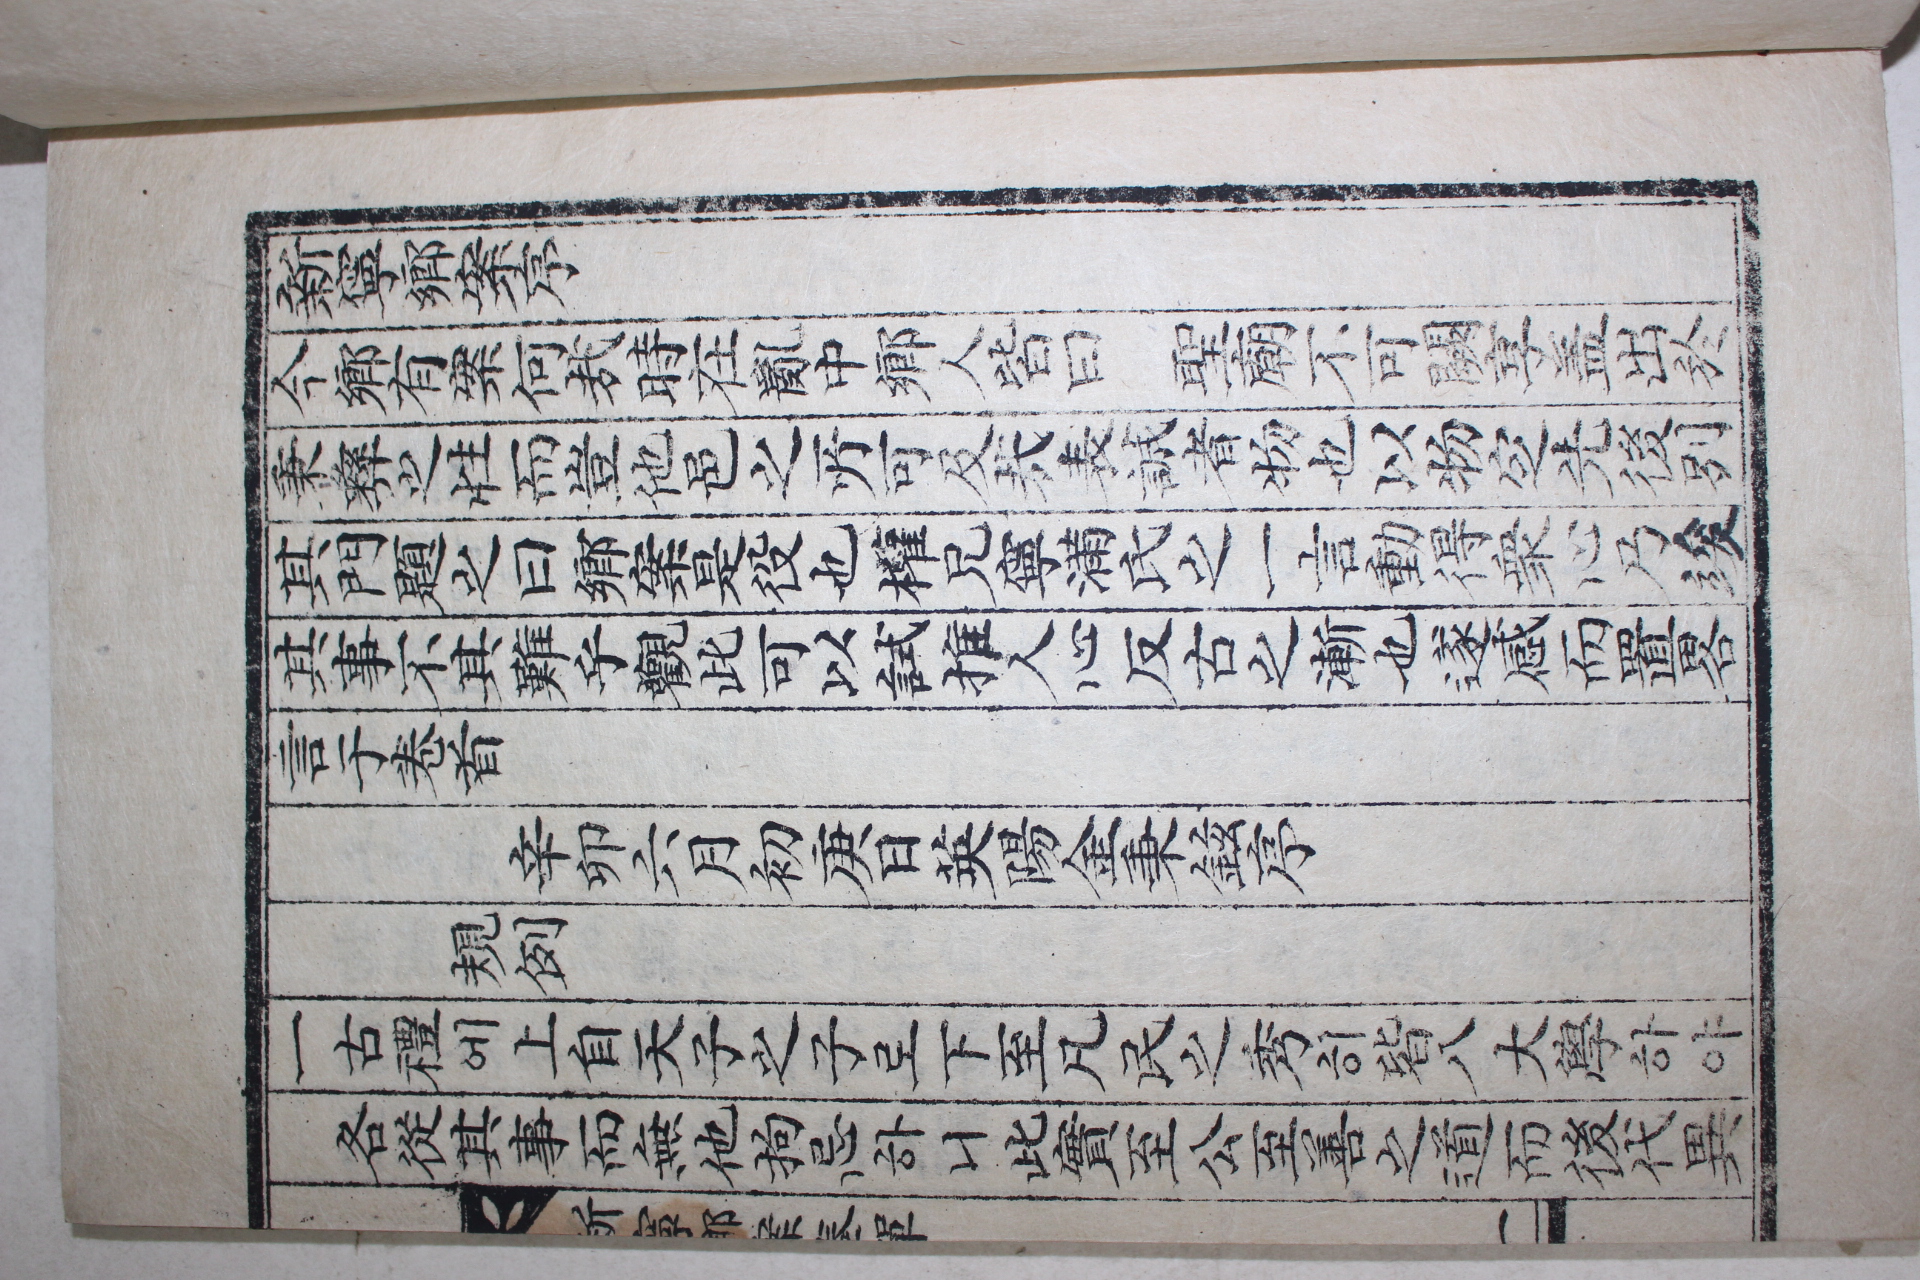 新寧鄕案序
今鄕有案何哉時在亂中鄕人皆曰 聖廟不可闕享盖出於
秉彛之性而豈他邑之所可及哉表誠者物也以物定先後別
其門題之曰鄕案是役也權兄寧満氏之一言動得衆心乃竣
其事不其難乎觀此可以試推人心反古之漸也遂感而置畧
言于卷首
辛卯六月初庚日英陽金秉序
規例
一古禮에上自天子之子로下至凡民之秀히皆入大學하야
各從其事而無他拘忌하니此實至公至善之道而後代異
新寧鄕案